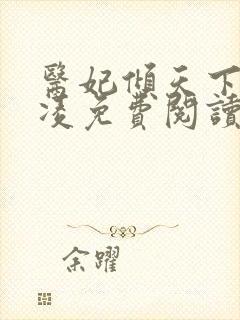 醫妃傾天下
凌免費閱讀
余躍